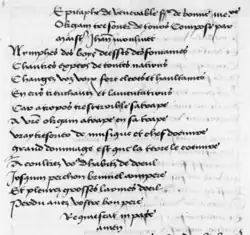 Epitaphe de venerable de bonne
Okgam de tours Compose par
Jean moulinet
Nymphes des boys deesses des fontaines
Chantres expers de toutes nations
Changez voz voix fort cleres et haultaines
En cris trenchans et lamentations
Car atropos tresterrible satrape
A vre okgam atrape en sa trape
vray de musique et chef doeuvre
grand dommaige est que la terre le coeuvre
Acoultrez vo dhabits de doeul
Josquin perchon brumel compere
Et plourez grosses larmes doeul
Perdu avez vostre bon pere
Requiescat in pace
amen